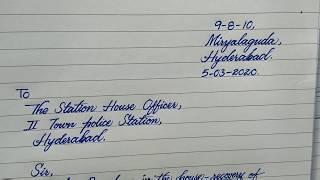 9-8-10,
Miryalaguda,
Hyderabad.
5-03-2020.
To
The Station House Officer,
II Town police Station,
Hyderabad.
Sir,
in the house-recovery of